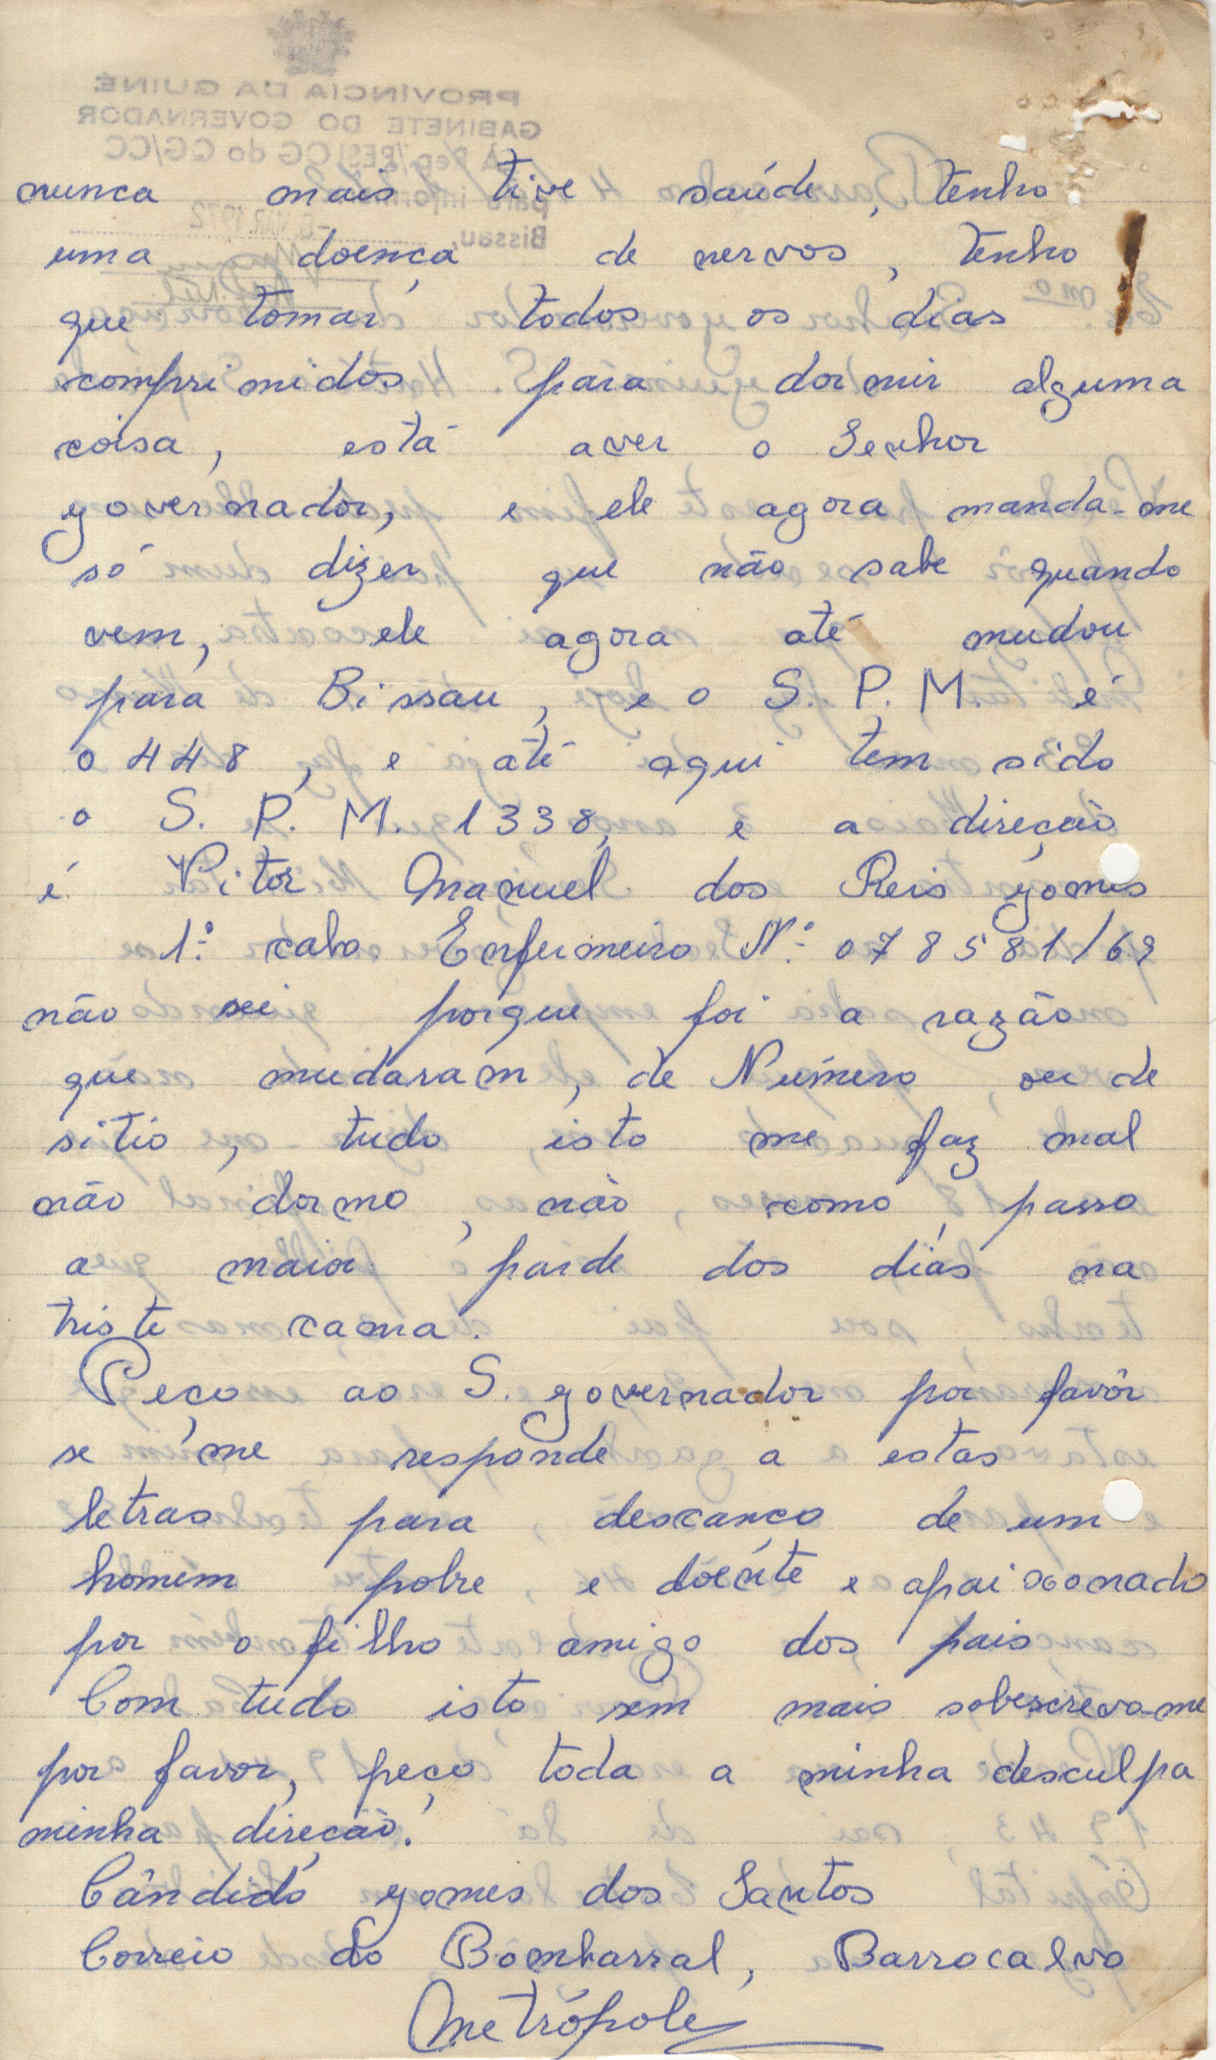 nunca mais tive saúde, tenho
uma doença de nervos, tenho
que tomar todos os dias
comprimidos para dormir alguma
coisa, está aver o Senhor
governador, e ele agora manda-me
só dizer que não sabe quando
vem, ele agora até mudou
para Bissau, e o S. P. M. é
o 448, e até aqui tem sido
o S. P. M. 1338, e a direção
é Vitor Manuel dos Reis gomes
1.º cabo Enfermeiro N.º 078581/69
não sei porque foi a razão
que mudaram, de Número, ou de
sitio, tudo isto me faz mal
não dormo, não, como, passo
a maior parde dos dias na
triste cama.
Peço ao S. governador por favôr
se me responde a estas
letras para descanço de um
homem pobre, e doente e apaixonado
por o filho amigo dos pais
Com tudo isto sem mais sobescrevo-me
por favor, peço toda a minha desculpa
minha direção.
Cândido gomes dos Santos
Correio do Bombarral, Barrocalvo
Metrópole
PROVÍNCIA DA GUINÉ
GABINETE DO GOVERNADOR
Bissau,